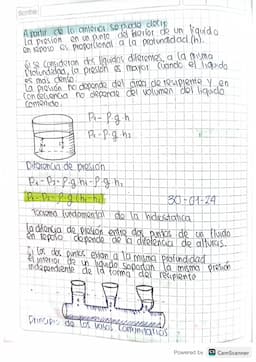 Scribe
A partir de lo anterior se puede decir:
La presión en un punto del interior de un liquido
en reposo es proporcional a la profundidad (h).
Si se consideran dos liquidos diferentes, a la misma
Profundidad, la presión es mayor cuando el liquido
es mas denso.
La presión no depende del área de recipiente y en
consecuencia no depende del volumen del liquido
contenido.
P₁ = ρ·g·h
P₂ = ρ·g·h₂
Diferencia de presión
P₂ - P₁ =
30-01-24
Teorema fundamental de la hidrostatica
La diferencia de presión entre dos puntos de un fluido
en reposo depende de la diferencia de alturas.
Si los dos puntos estan a la misma profundidad
el interior de un liquido soportan la misma presión
independiente de la forma del recipiente
Principio de los vasos comunicantes
Powered by CS CamScanner